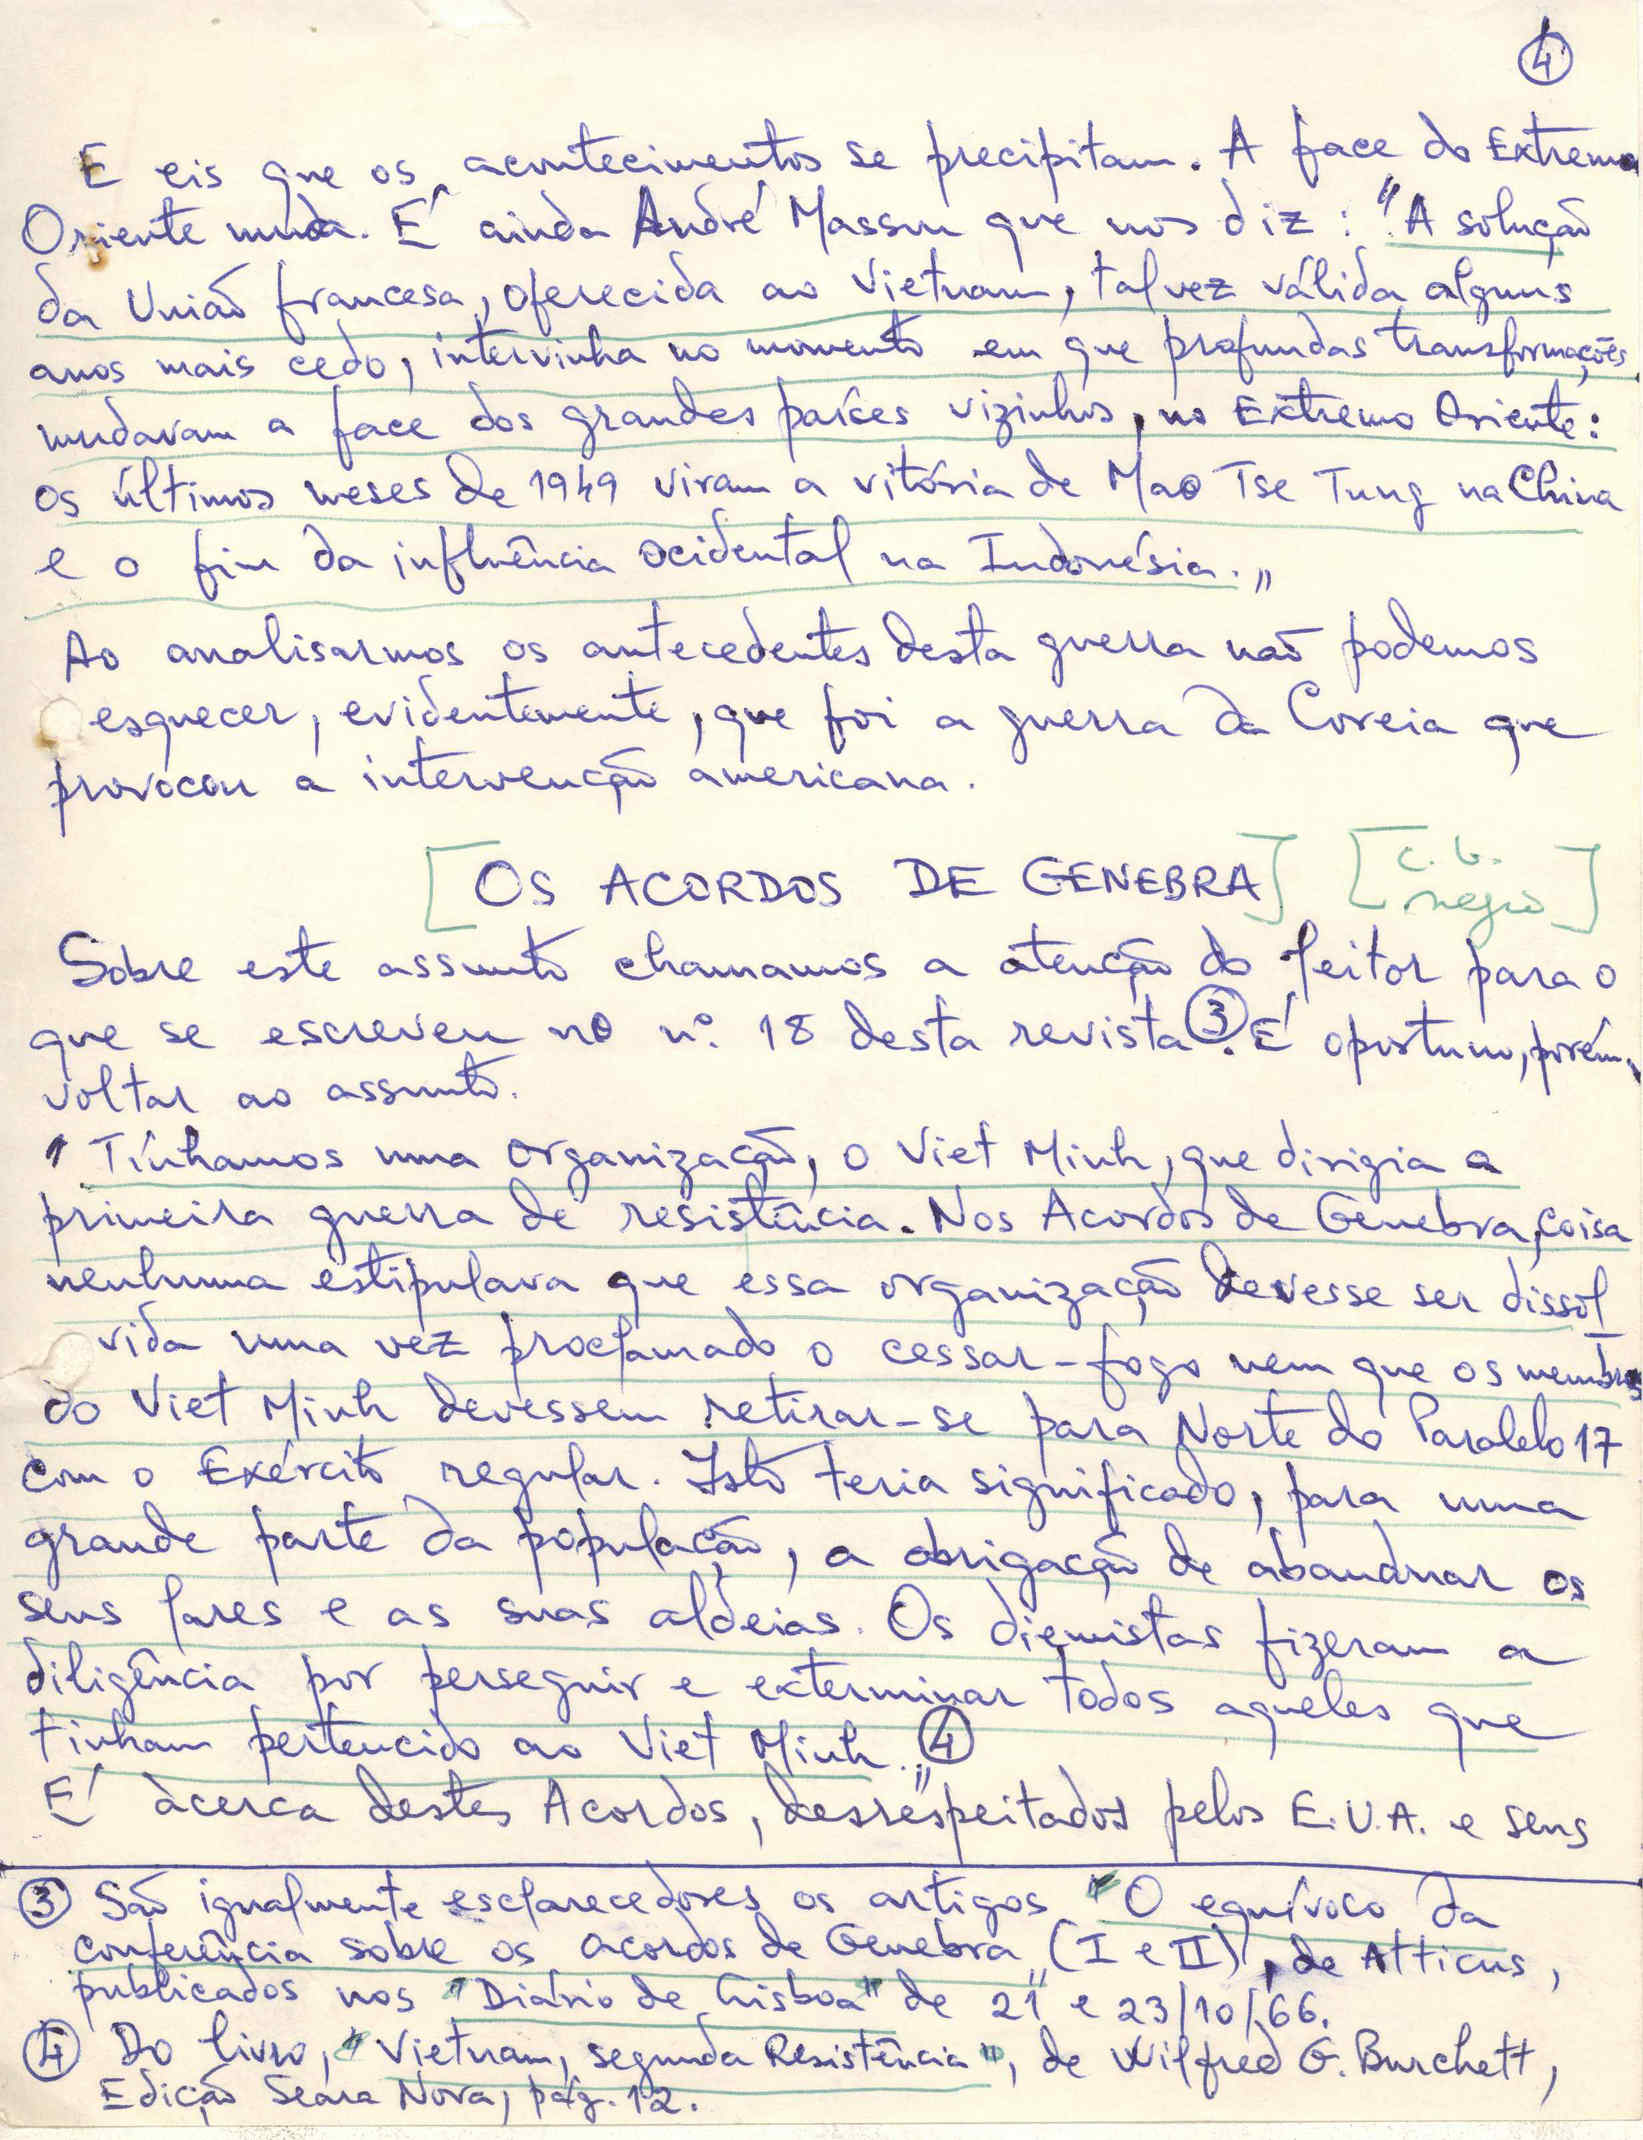 4
E eis que os acontecimentos se precipitam. A face do Extremo
Oriente muda. É ainda André Massu que nos diz: "A solução
da União francesa, oferecida ao Vietnam, talvez válida alguns
anos mais cedo, intervinha no momento em que profundas transformações
mudavam a face dos grandes países vizinhos, no Extremo Oriente:
os últimos meses de 1949 viram a vitória de Mao Tse Tung na China
e o fim da influência ocidental na Indonésia."
Ao analisarmos os antecedentes desta guerra não podemos
esquecer, evidentemente, que foi a guerra da Coreia que
provocou a intervenção americana.
[OS ACORDOS DE GENEBRA] [c. b.
negro]
Sobre este assunto chamamos a atenção do leitor para o
que se escreveu no nº. 18 desta revista (3). É oportuno, porém,
voltar ao assunto.
"Tínhamos uma organização, o Viet Minh, que dirigia a
primeira guerra de resistência. Nos Acordos de Genebra, coisa
nenhuma estipulava que essa organização devesse ser dissol
vida uma vez proclamado o cessar-fogo nem que os membros
do Viet Minh devessem retirar-se para Norte do Paralelo 17
com o Exército regular. Isto teria significado, para uma
grande parte da população, a obrigação de abandonar os
seus lares e as suas aldeias. Os diemistas fizeram a
diligência por perseguir e exterminar todos aqueles que
tinham pertencido ao Viet Minh." (4)
É àcerca destes Acordos, desrespeitados pelos E.U.A. e seus
(3) São igualmente esclarecedores os artigos "O equívoco da
conferência sobre os acordos de Genebra" (I e II), de Atticus,
publicados nos "Diário de Lisboa" de 21 e 23/10/66.
(4) Do livro, "Vietnam, segunda Resistência", de Wilfred G. Burchett,
Edição Seara Nova, pág. 12.